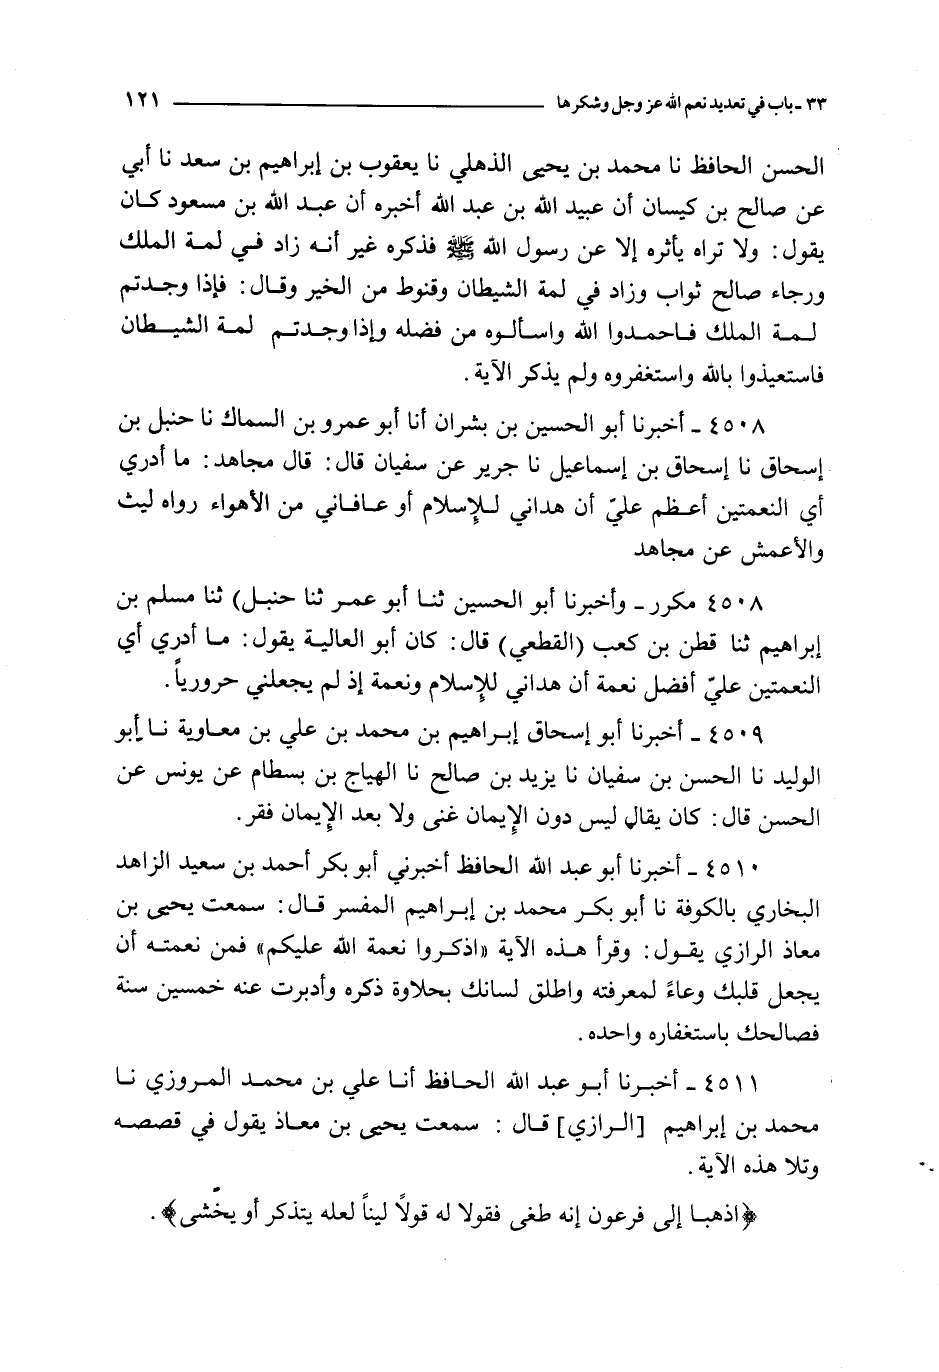 ٣٣ - باب في تعديد نعم الله عز وجل وشكرها ١٢١
الحسن الحافظ نا محمد بن يحيى الذهلي نا يعقوب بن إبراهيم بن سعد نا أبي
عن صالح بن كيسان أن عبيد الله بن عبد الله أخبره أن عبد الله بن مسعود كان
يقول: ولا تراه يأثره إلا عن رسول الله ﷺ فذكره غير أنه زاد في لمة الملك
ورجاء صالح ثواب وزاد في لمة الشيطان وقنوط من الخير وقال: فإذا وجدتم
لمة الملك فاحمدوا الله واسألوه من فضله وإذا وجدتم لمة الشيطان
فاستعيذوا بالله واستغفروه ولم يذكر الآية.
٤٥٠٨ - أخبرنا أبو الحسين بن بشران أنا أبو عمرو بن السماك نا حنبل بن
إسحاق نا إسحاق بن إسماعيل نا جرير عن سفيان قال: قال مجاهد: ما أدري
أي النعمتين أعظم عليّ أن هداني للإسلام أو عافاني من الأهواء رواه ليث
والأعمش عن مجاهد
٤٥٠٨ مكرر - وأخبرنا أبو الحسين ثنا أبو عمر ثنا حنبل) ثنا مسلم بن
إبراهيم ثنا قطن بن كعب (القطعي) قال: كان أبو العالية يقول: ما أدري أي
النعمتين عليّ أفضل نعمة أن هداني للإسلام ونعمة إذ لم يجعلني حرورياً.
٤٥٠٩ - أخبرنا أبو إسحاق إبراهيم بن محمد بن علي بن معاوية نا أبو
الوليد نا الحسن بن سفيان نا يزيد بن صالح نا الهياج بن بسطام عن يونس عن
الحسن قال: كان يقال ليس دون الإيمان غنى ولا بعد الإيمان فقر.
٤٥١٠ - أخبرنا أبو عبد الله الحافظ أخبرني أبو بكر أحمد بن سعيد الزاهد
البخاري بالكوفة نا أبو بكر محمد بن إبراهيم المفسر قال: سمعت يحيى بن
معاذ الرازي يقول: وقرأ هذه الآية «اذكروا نعمة الله عليكم» فمن نعمته أن
يجعل قلبك وعاءً لمعرفته واطلق لسانك بحلاوة ذكره وأدبرت عنه خمسين سنة
فصالحك باستغفاره واحده.
٤٥١١ - أخبرنا أبو عبد الله الحافظ أنا علي بن محمد المروزي نا
محمد بن إبراهيم [الرازي] قال : سمعت يحيى بن معاذ يقول في قصصه
وتلا هذه الآية.
﴿اذهبا إلى فرعون إنه طغى فقولا له قولاً ليناً لعله يتذكر أو يخشى﴾.